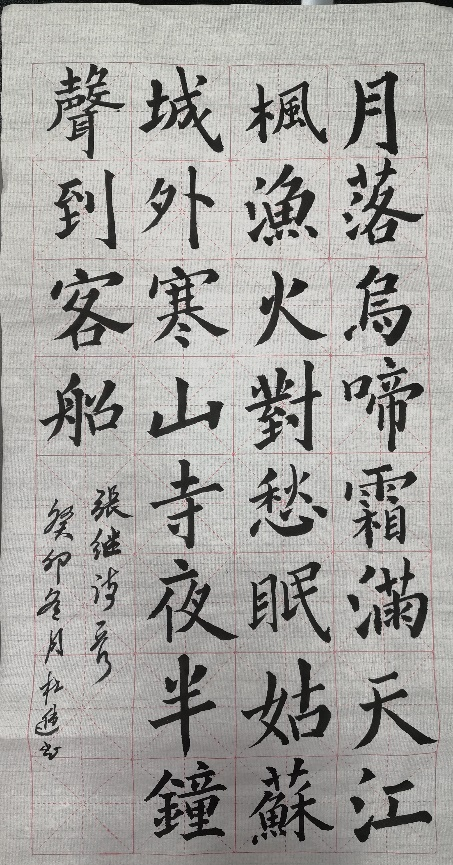 月落烏啼霜滿天江
楓漁火對愁眠姑蘇
城外寒山寺夜半鐘
聲到客船
張继诗一首
癸卯冬月杜進书